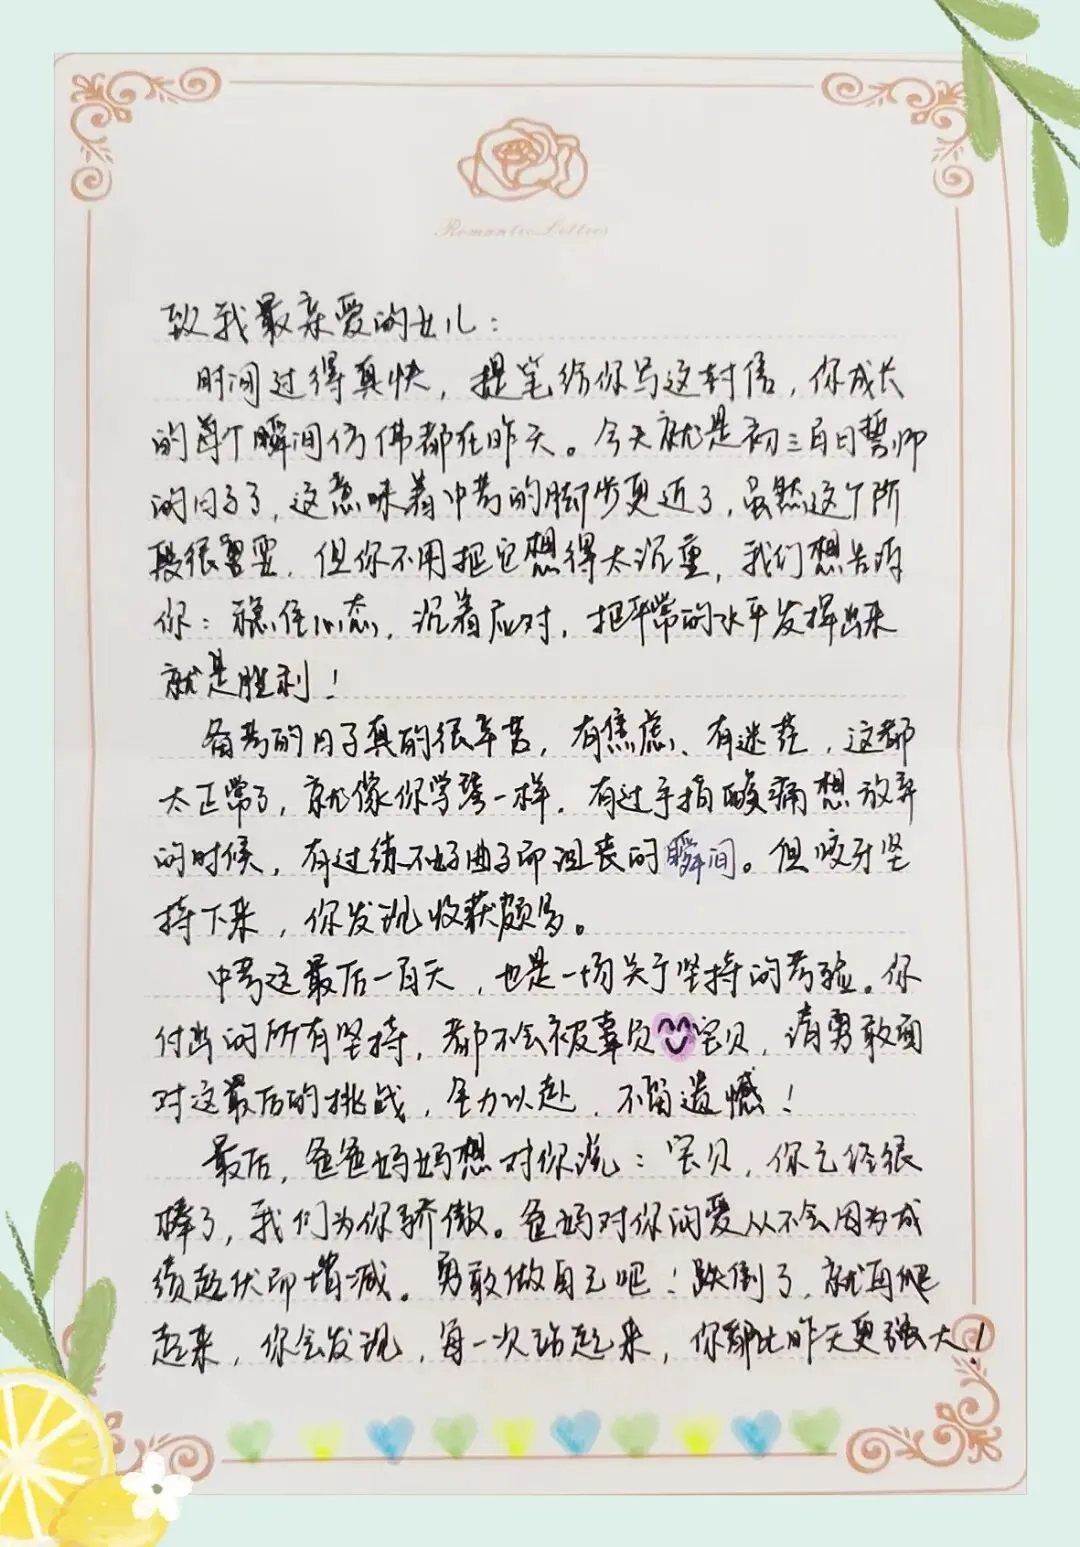 Romantic Letters
致我最亲爱的女儿：
时间过得真快，提笔给你写这封信，你成长
的每个瞬间仿佛都在昨天。今天就是初三百日誓师
的日子了，这意味着中考的脚步更近了，虽然这个阶
段很重要，但你不用把它想得太沉重，我们想告诉
你：稳住心态，沉着应对，把平常的水平发挥出来
就是胜利！
备考的日子真的很辛苦，有焦虑、有迷茫，这都
太正常了，就像你学琴一样，有过手指酸痛想放弃
的时候，有过练不好曲子即沮丧的瞬间。但咬牙坚
持下来，你发现收获颇多。
中考这最后一百天，也是一场关于坚持的考验。你
付出的所有坚持，都不会被辜负 宝贝，请勇敢面
对这最后的挑战，全力以赴，不留遗憾！
最后，爸爸妈妈想对你说：宝贝，你已经很
棒了，我们为你骄傲。爸妈对你的爱从不会因为成
绩起伏而增减。勇敢做自己吧！跌倒了，就再爬
起来，你会发现，每一次站起来，你都比昨天更强大！